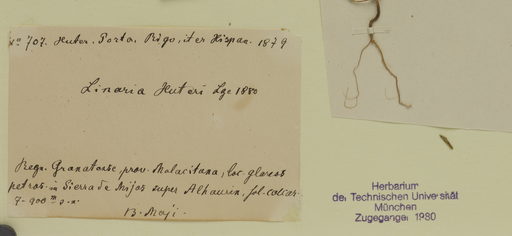 No 707. Huter. Porta. Rigo, iter Hispan. 1879
Linaria Huteri Lge 1880
Regn. Granatense prov. Malacitana, loc. glareos
petros. in Sierra de Mijas super Alhaurin, sol. calcar.
7-900 m s. m.
13. Maji.
Herbarium
der Technischen Universität
München
Zugegangen 1980